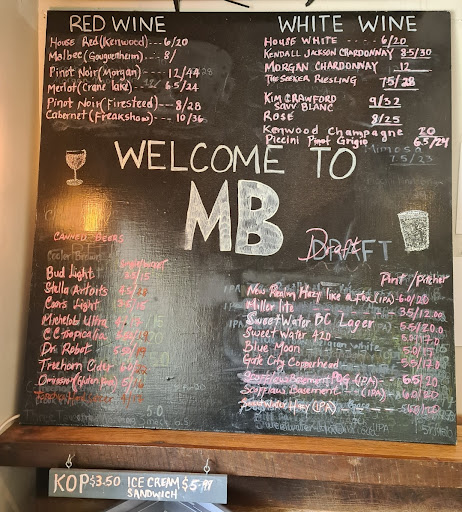 RED WINE
House Red (Kenwood) --- 6/20
Malbec (Gouguenheim) --- 8/
Pinot Noir (Morgan) --- 12/44
Merlot (Crane lake) --- 6.5/24
Pinot Noir (Firesteed) --- 8/28
Cabernet (Freakshow) --- 10/36
WHITE WINE
HOUSE WHITE ---- 6/20
KENDALL JACKSON CHARDONNAY 8.5/30
MORGAN CHARDONNAY 12
THE SEEKER RIESLING 7.5/28
KIM CRAWFORD SAVV BLANC 9/32
ROSÉ 8/25
Kenwood Champagne 20
Piccini Pinot Grigio 6.5/24
Mimosa
7.5/23
WELCOME TO
MB
CANNED BEERS
Bud light 3.5/15
Stella Artoits 4.5/
Coors light 3.5/15
Michelob Ultra
CC tropicalia
Dr. Robot
Treehorn Cider
Draft
DRAFT
Pint/pitcher
New Realm Hazy like a Fox (IPA) 6.0/20
Miller lite 3.5/12.00
SweetWater BC Lager 5.5/20.0
Sweet Water 420 5.0/17.0
Blue Moon 5.0/17
Gate City Copperhead 5.5/17.0
Scofflaws Basement POG (IPA) 6.5/20
Scofflaws Basement (IPA)
SweetWater Hazy (IPA)
KOP $3.50 ICE CREAM SANDWICH $5.